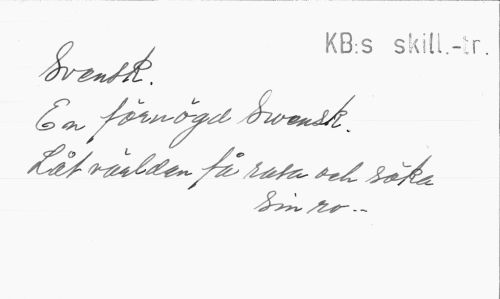 KB:s skill.-tr.
Svensk.
En förnögd Swensk.
Låt världen få rasa och söka
sin ro--